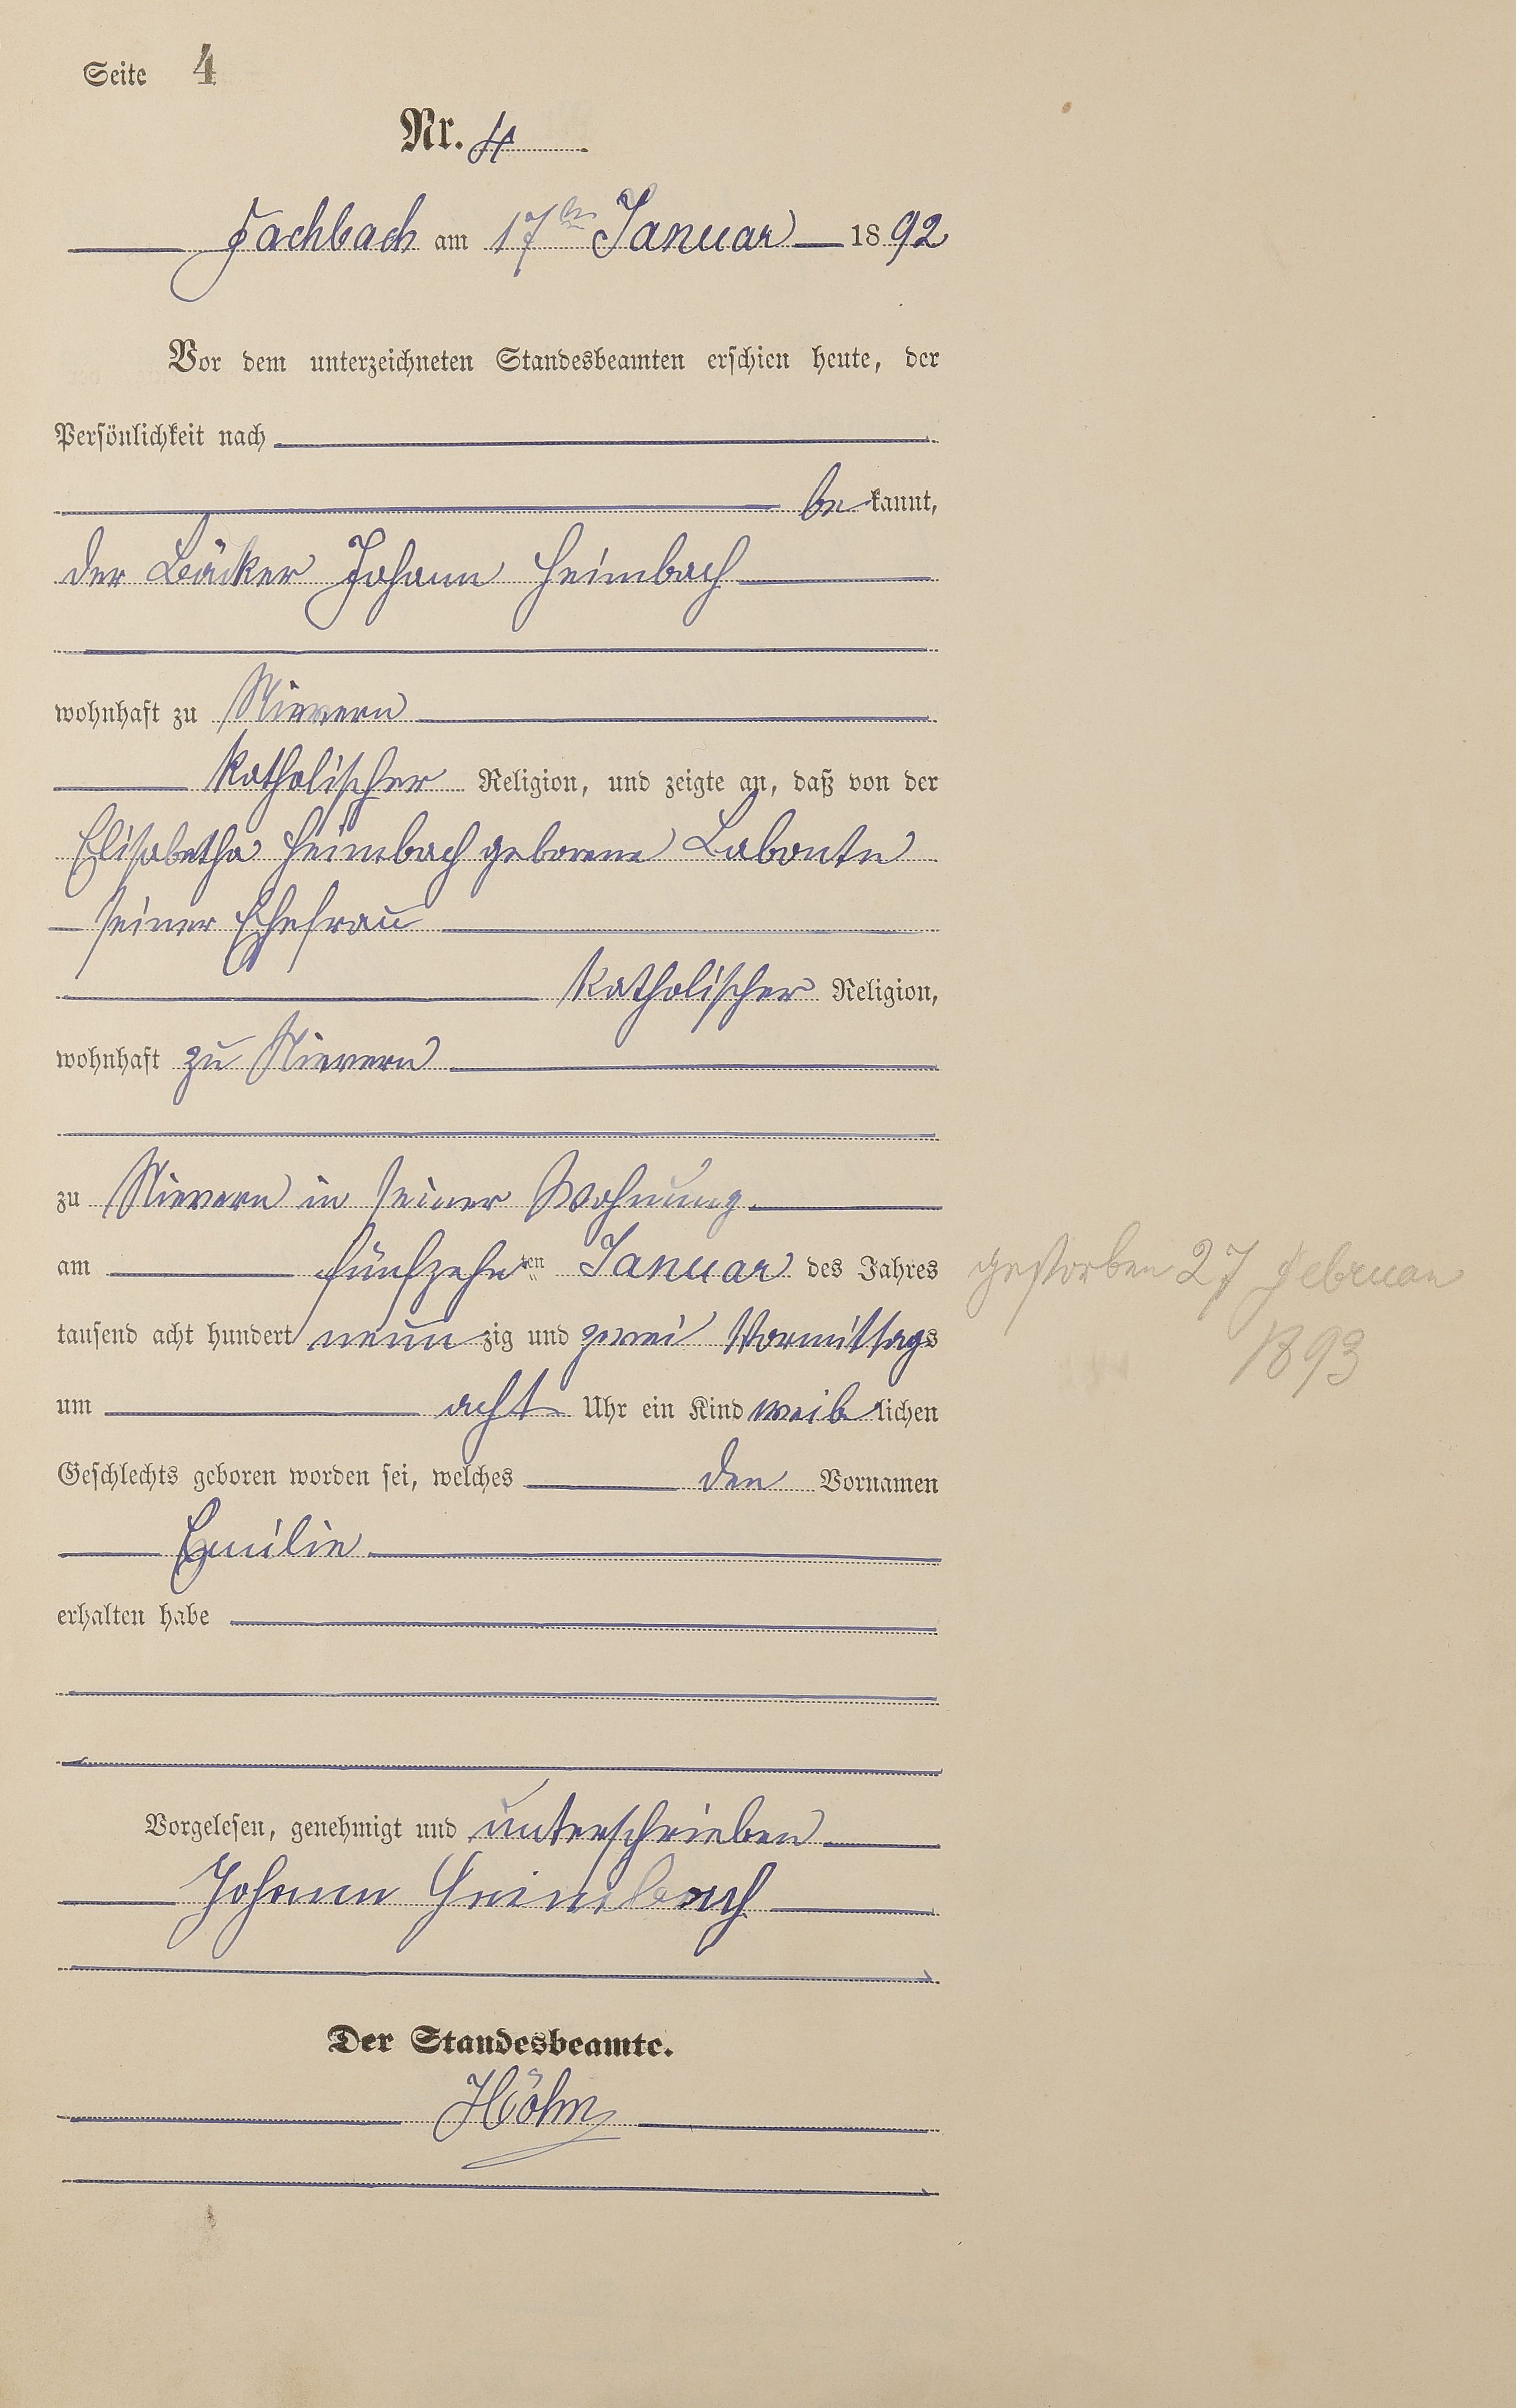 Seite 4
Nr. 4
Fachbach am 17ten Januar 1892
Vor dem unterzeichneten Standesbeamten erschien heute, der
Persönlichkeit nach
bekannt,
der Bäcker Johann Heimbach
wohnhaft zu Nievern
katholischer Religion, und zeigte an, daß von der
Elisabetha Heimbach geborene Labonte
seiner Ehefrau
katholischer Religion,
wohnhaft zu Nievern
zu Nievern in seiner Wohnung
am fünfzehnten Januar des Jahres
tausend acht hundert neunzig und zwei Vormittags
um acht Uhr ein Kind weiblichen
Geschlechts geboren worden sei, welches den Vornamen
Emilie
erhalten habe
Vorgelesen, genehmigt und unterschrieben
Johann Heimbach
Der Standesbeamte.
Höhn
gestorben 27 Februar
1893